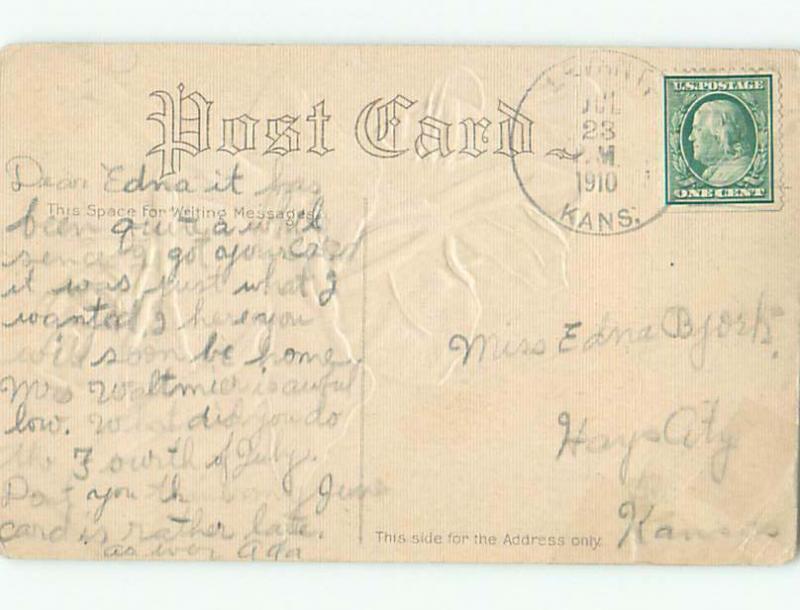 Post Card
U.S. POSTAGE
ONE CENT
JUL
23
M.
1910
KANS.
This Space for Writing Messages.
Dear Edna it has
been quite a whil
sence I got your card
it was just what I
wanted I here you
will soon be home.
Mrs Waltmier is awful
low. What did you do
the Fourth of July.
Dont you th my June
card is rather late.
as ever Ada
Miss Edna Bjork.
Hays City
Kansas
This side for the Address only.